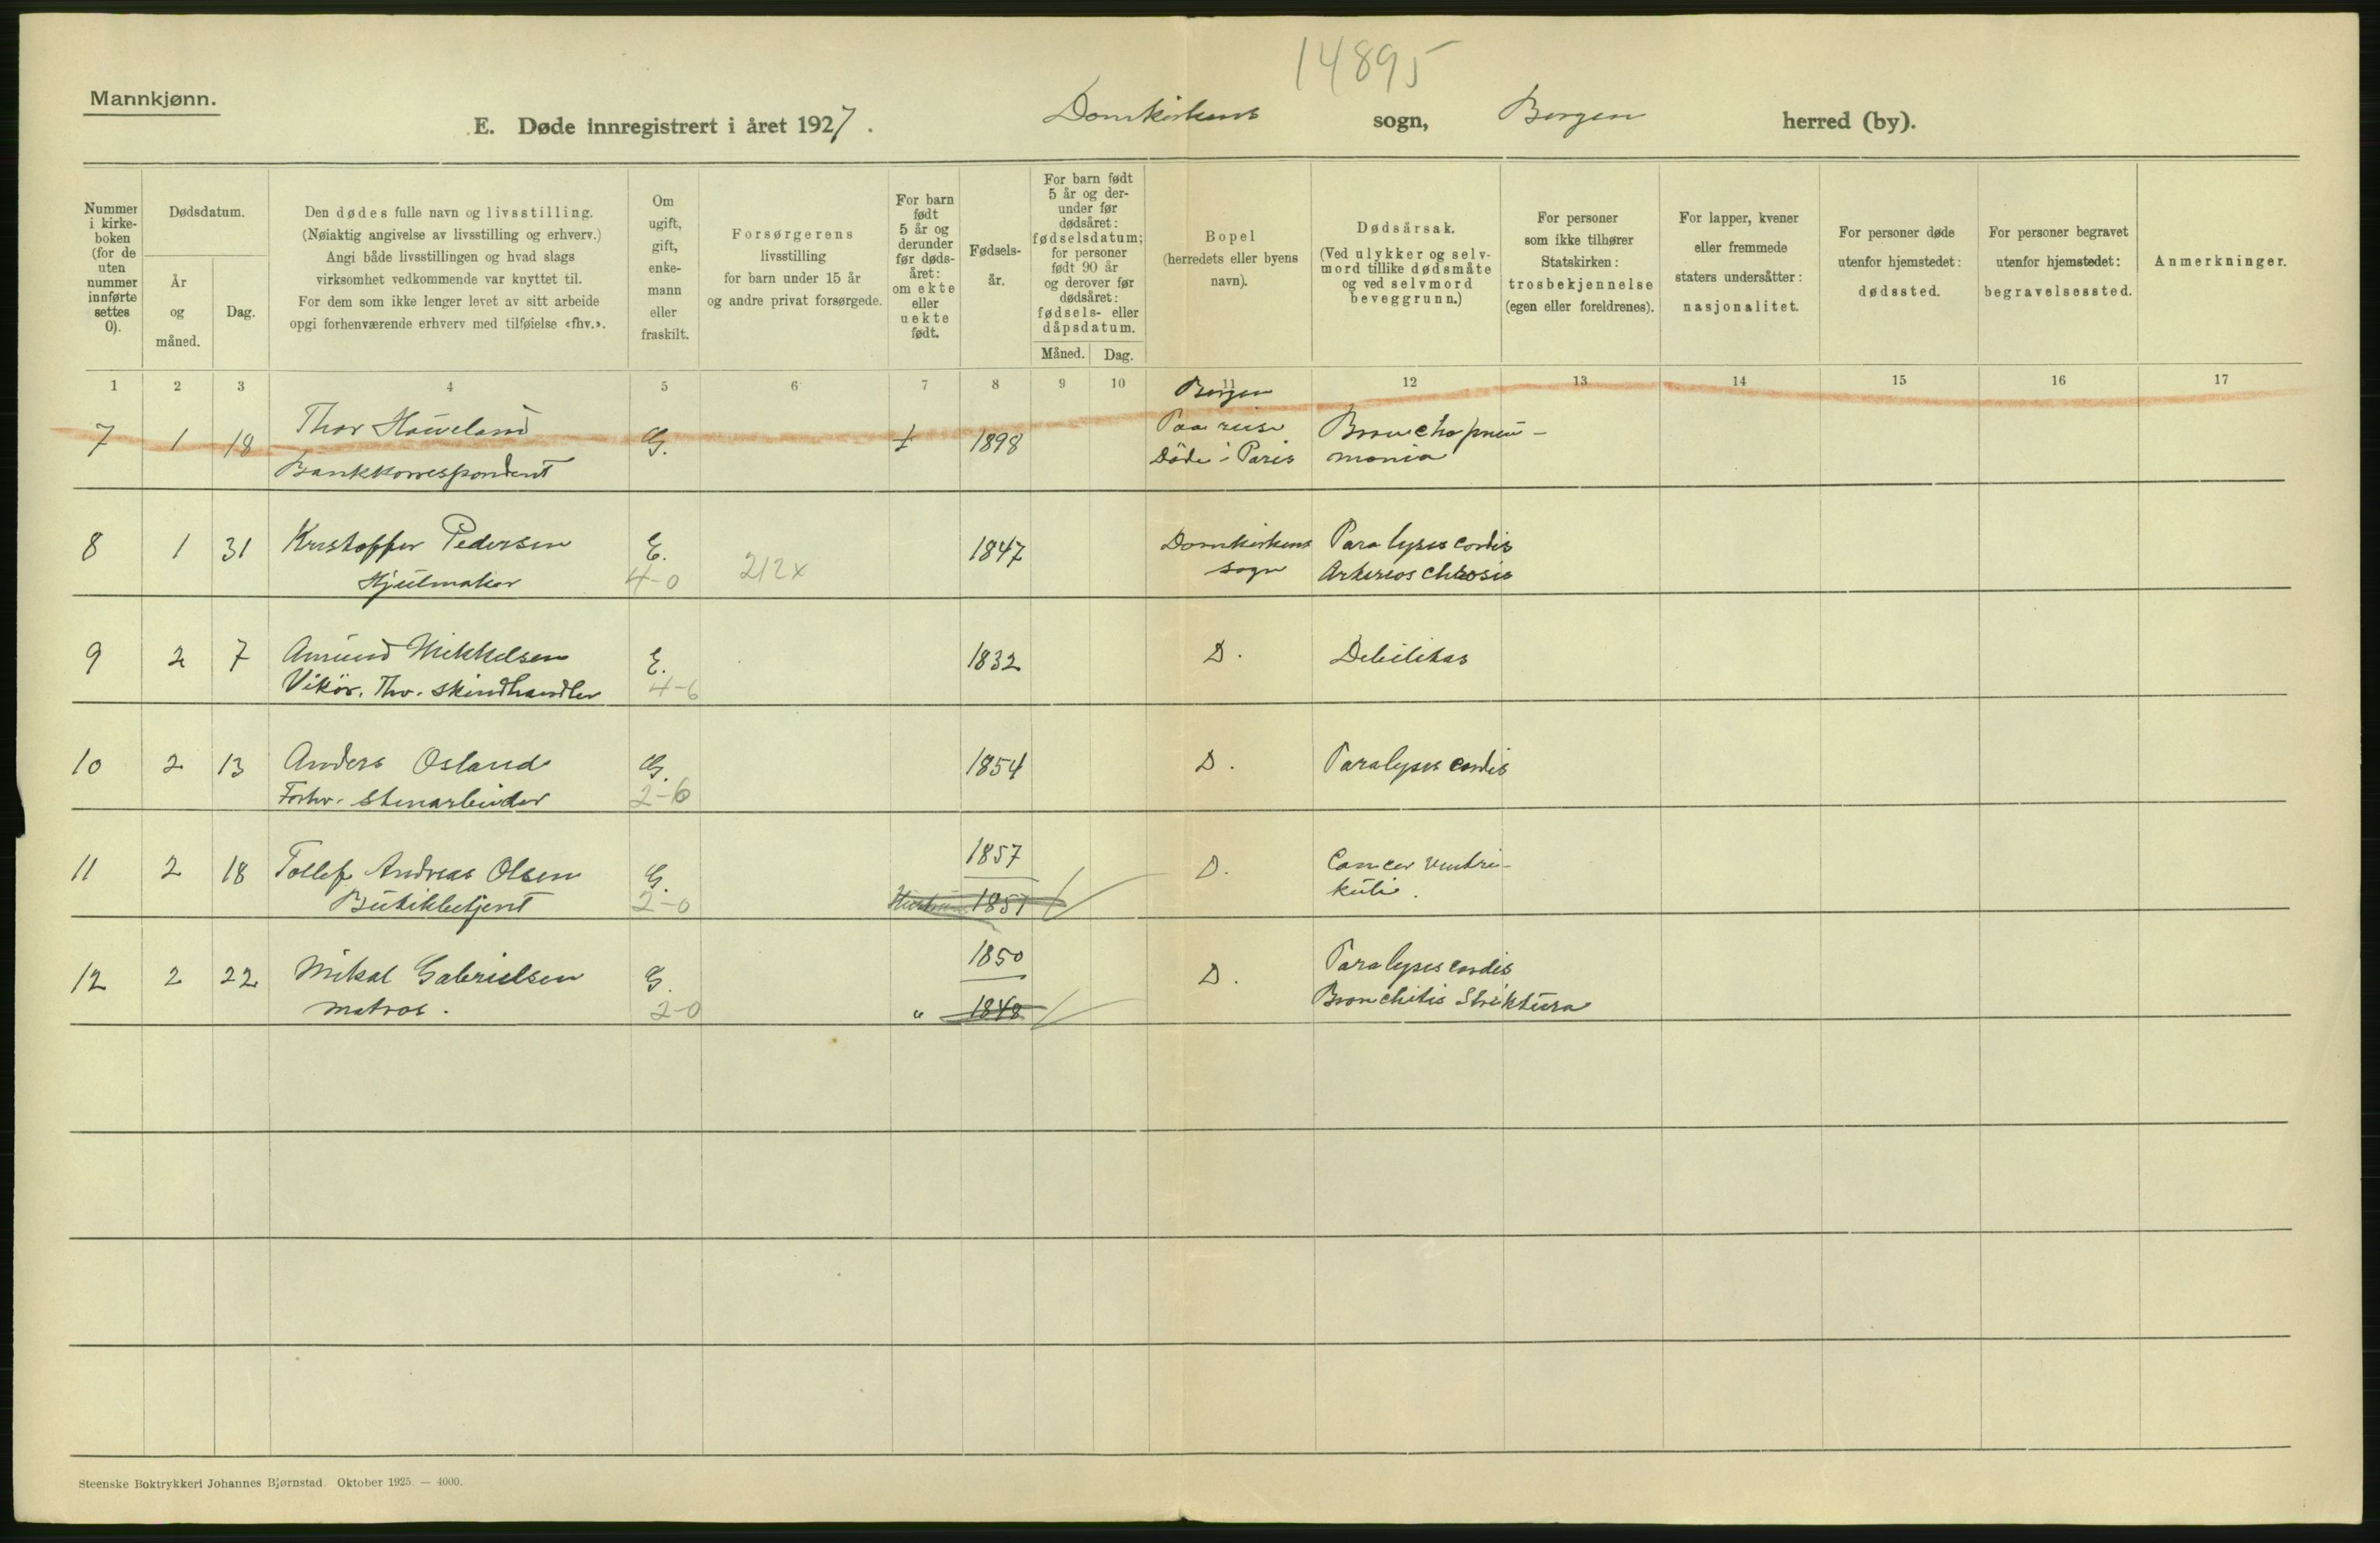 14895
Mannkjønn.
E. Døde innregistrert i året 1927. Domkirkens sogn, Bergen herred (by).
Nummer i kirke-boken (for de uten nummer innførte settes 0).
Dødsdatum.
År og måned.
Dag.
Den dødes fulle navn og livsstilling.
(Nøiaktig angivelse av livsstilling og erhverv.)
Angi både livsstillingen og hvad slags
virksomhet vedkommende var knyttet til.
For dem som ikke lenger levet av sitt arbeide
opgi forhenværende erhverv med tilføielse «fhv.».
Om ugift, gift, enke-mann eller fraskilt.
Forsørgerens
livsstilling
for barn under 15 år
og andre privat forsørgede.
For barn født 5 år og derunder før døds-året: om ekte eller uekte født.
Fødsels-år.
For barn født 5 år og der-under før dødsåret: fødselsdatum; for personer født 90 år og derover før dødsåret: fødsels- eller dåpsdatum.
Måned. Dag.
Bopel
(herredets eller byens
navn).
Dødsårsak.
(Ved ulykker og selv-
mord tillike dødsmåte
og ved selvmord
beveggrunn.)
For personer
som ikke tilhører
Statskirken:
trosbekjennelse
(egen eller foreldrenes).
For lapper, kvener
eller fremmede
staters undersåtter:
nasjonalitet.
For personer døde
utenfor hjemstedet:
dødssted.
For personer begravet
utenfor hjemstedet:
begravelsessted.
Anmerkninger.
1 2 3 4 5 6 7 8 9 10 11 12 13 14 15 16 17
Bergen
7 1 18 Thor Haveland G. 1898 Paa reise Bronchopneu-
Bankkorrespondent Döde i Paris monia
8 1 31 Kristoffer Pedersen E. 1847 Domkirkens Paralyses cordis
Hjulmaker 4-0 212x sogn Arterioschlrosis
9 2 7 Amund Mikkelsen E. 1832 D. Debilitas
Vikör. Fhv. skindhandler 4-6
10 2 13 Anders Osland G. 1854 D. Paralyses cordis
Forhv. stenarbeider 2-6
1857
11 2 18 Tollef Andreas Olsen G. D. Cancer ventri-
Butikkbetjent 2-0 1851 kuli.
1850
12 2 22 Mikal Gabrielsen G. D. Paralyses cordis
matros. 2-0 " 1848 Bronchitis Striktura
Steenske Boktrykkeri Johannes Bjørnstad. Oktober 1925. — 4000.